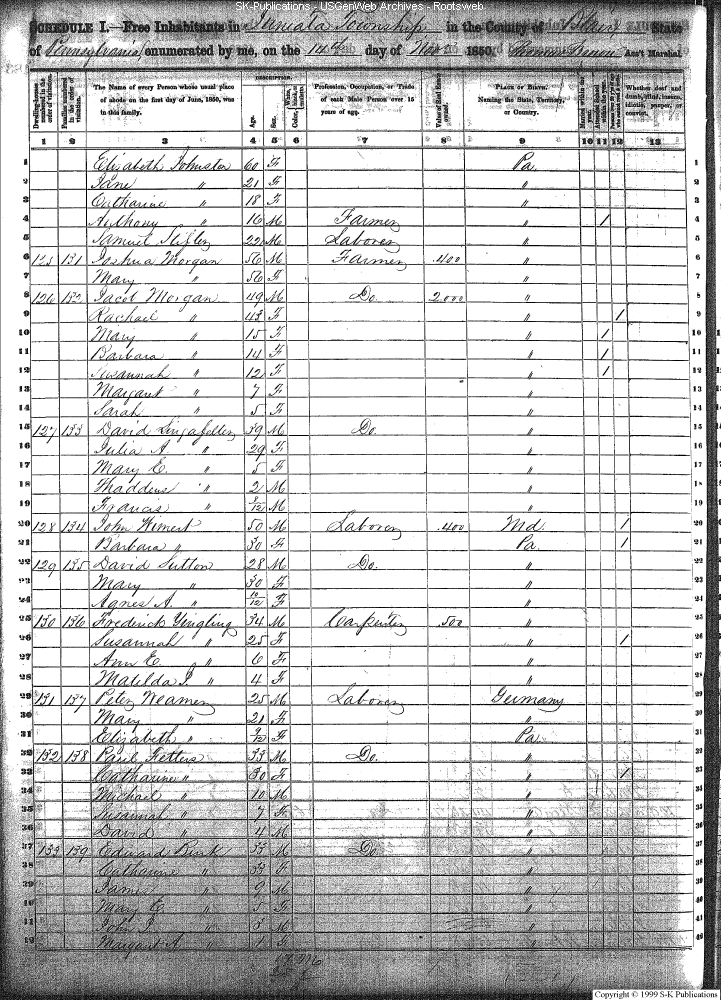 SK-Publications - USGenWeb Archives - Rootsweb
SCHEDULE I.—Free Inhabitants in Juniata Township in the County of Blair State
of Pennsylvania enumerated by me, on the 14th day of Nov 1850. Ass't Marshal.
Dwelling-houses numbered in the order of visitation.
Families numbered in the order of visitation.
The Name of every Person whose usual place of abode on the first day of June, 1850, was in this family.
DESCRIPTION.
Age.
Sex.
Color, White, black, or mulatto.
Profession, Occupation, or Trade of each Male Person over 15 years of age.
Value of Real Estate owned.
PLACE OF BIRTH. Naming the State, Territory, or Country.
Married within the year.
Attended School within the year.
Whether deaf and dumb, blind, insane, idiotic, pauper, or convict.
1 2 3 4 5 6 7 8 9 10 11 12 13
1 Elizabeth Johnston 60 F Pa 1
2 Jane " 21 F " 2
3 Catharine " 18 F " 3
4 Anthony " 16 M Farmer " / 4
5 Samuel Stifler 22 M Laborer " 5
6 125 131 Joshua Morgan 56 M Farmer 400 " 6
7 Mary " 56 F " 7
8 126 132 Jacob Morgan 49 M Do 2000 " 8
9 Rachael " 43 F " / 9
10 Mary " 15 F " / 10
11 Barbara " 14 F " / 11
12 Susannah " 12 F " / 12
13 Margaret " 7 F " 13
14 Sarah " 5 F " 14
15 127 133 David Lingafelter 39 M Do. " 15
16 Julia A. " 29 F " 16
17 Mary E. " 5 F " 17
18 Thaddeus " 2 M " 18
19 Francis " 3/12 M " 19
20 128 134 John Wimert 50 M Laborer 400 Md. / 20
21 Barbara " 30 F Pa. / 21
22 129 135 David Sutton 28 M Do. " 22
23 Mary " 30 F " 23
24 Agnes A. " F " 24
25 130 136 Frederick Yingling 34 M Carpenter 500 " 25
26 Susannah " 25 F " / 26
27 Ann E. " 6 F " 27
28 Matilda J. " 4 F " 28
29 131 137 Peter Weamer 25 M Laborer Germany 29
30 Mary " 21 F " 30
31 Elizabeth " F Pa 31
32 132 138 Paul Fetters 33 M Do. " 32
33 Catharine " 30 F " / 33
34 Michael " 10 M " 34
35 Susannah " 7 F " 35
36 David " 4 M " 36
37 133 139 Edward Burk 33 M Do " 37
38 Catharine " 33 F " 38
39 James " 9 M " 39
40 Mary E. " F " 40
41 John J. " 3 M " 41
42 Margaret A " 1 F " 42
Copyright © 1999 S-K Publications